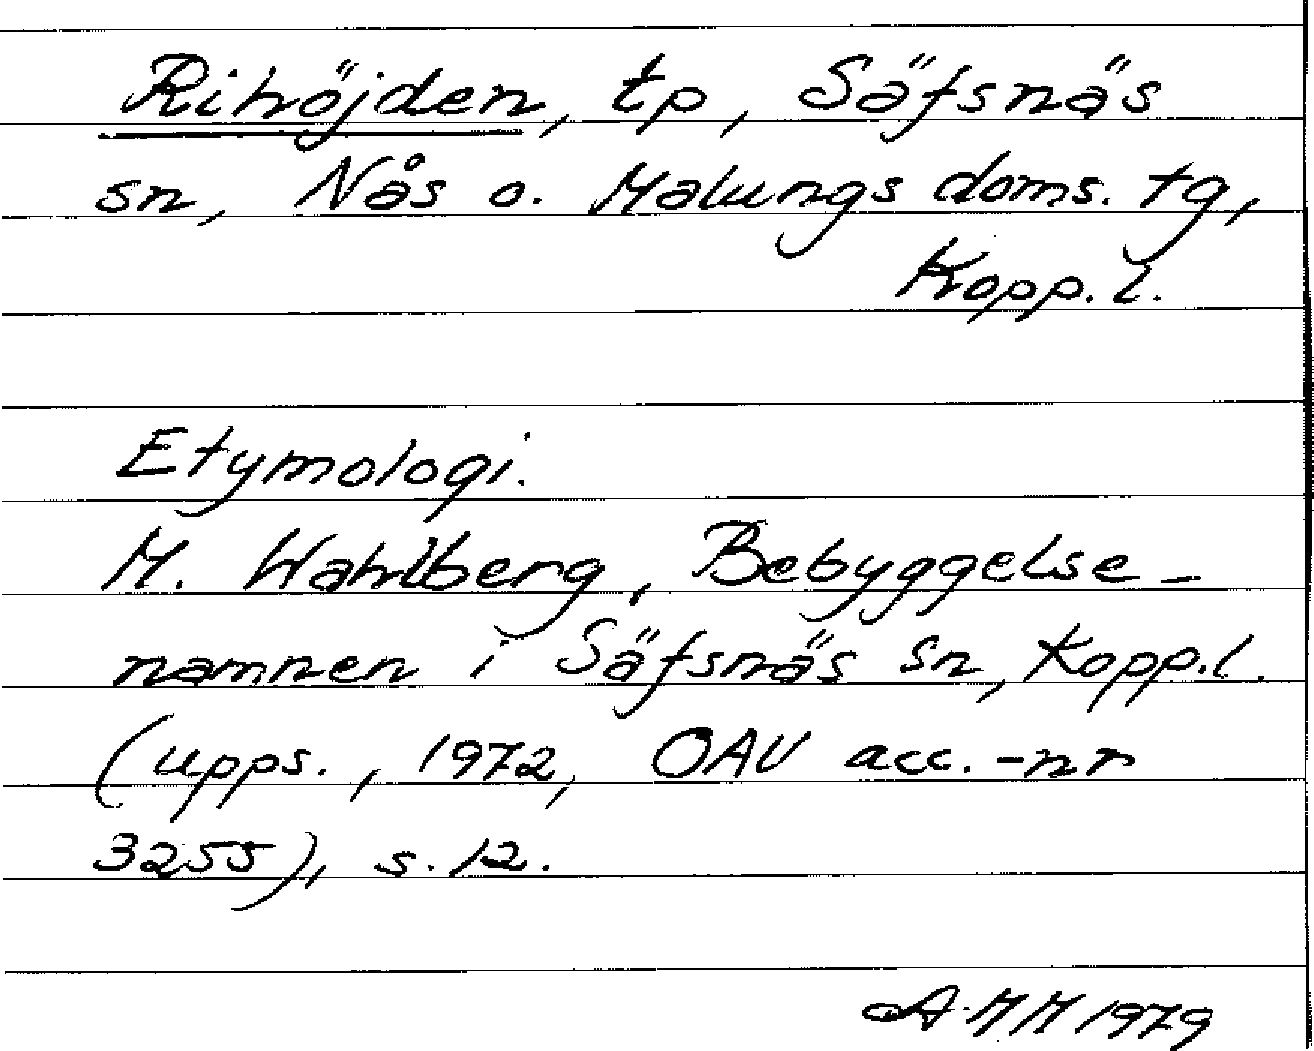 Rihöjden, tp, Säfsnäs
sn, Nås o. Malungs doms. tg,
Kopp. l.
Etymologi.
M. Wahlberg, Bebyggelse-
namnen i Säfsnäs sn, Kopp.l.
(upps., 1972, OAU acc.-nr
3255), s. 12.
A-MM 1979